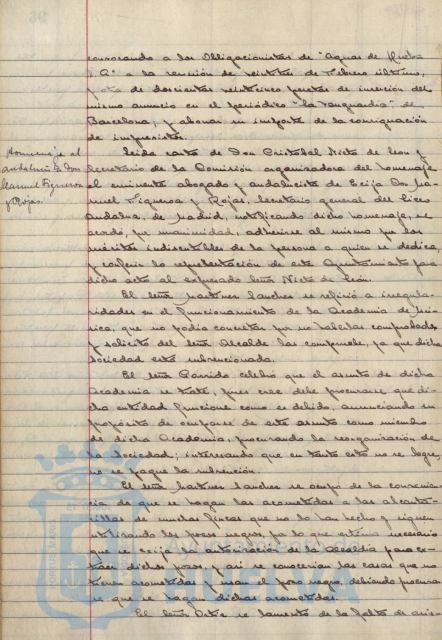 convocando a los Obligacionistas de "Aguas de Huelva
S.A" a la reunión de veintitres de Febrero último,
y otra de doscientas veinticinco pesetas de inserción del
mismo anuncio en el periódico "La Vanguardia" de
Barcelona; y abonar su importe de la consignación
de imprevistos.
Homenaje al
andalucista Don
Manuel Figueroa
y Rojas.
Leida carta de Don Cristobal Nieto de León y
Secretario de la Comisión organizadora del homenaje
al eminente abogado y andalucista de Ecija Don Ma-
nuel Figueroa y Rojas, Secretario general del Liceo
Andaluz, de Madrid, notificando dicho homenaje, se
acordó, por unanimidad, adherirse al mismo por los
méritos indiscutibles de la persona a quien se dedica,
y conferir la representación de este Ayuntamiento para
dicho acto al expresado Señor Nieto de León.
El Señor Martinez Sanchez se refirió a irregula-
ridades en el funcionamiento de la Academia de Mú-
sica, que no podia concretar por no haberlas comprobado,
y solicitó del Señor Alcalde las compruebe, ya que dicha
Sociedad está subvencionada.
El Señor Garrido celebró que el asunto de dicha
Academia se trate, pues cree debe procurarse que di-
cha entidad funcione como es debido, anunciando su
propósito de ocuparse de este asunto como miembro
de dicha Academia, procurando la reorganización de
la Sociedad; interesando que en tanto esto no se logre,
no se pague la subvención.
El Señor Martinez Sanchez se ocupó de la convenien-
cia de que se hagan las acometidas a las alcanta-
rillas de muchas fincas que no lo han hecho y siguen
utilizando los pozos negros, por lo que estima necesario
que se exija la autorización de la Alcaldia para ex-
traer dichos pozos, y así se conocerían las casas que no
tienen acometidas y usan el pozo negro, debiendo procurar-
se que se hagan dichas acometidas.
El Señor Ortiz se lamentó de la falta de asis-